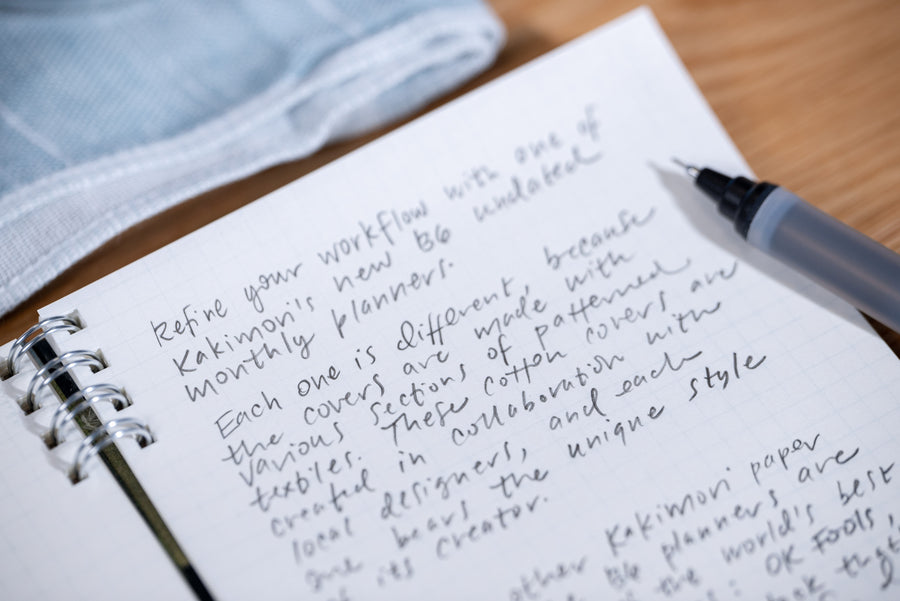 Refine your workflow with one of
Kakimori's new B6 undated
monthly planners.
Each one is different, because
the covers are made with
various sections of patterned
textiles. These cotton covers are
created in collaboration with
local designers, and each
one bears the unique style
of its creator.
other Kakimori paper
B6 planners are
the world's best
OK Fools,